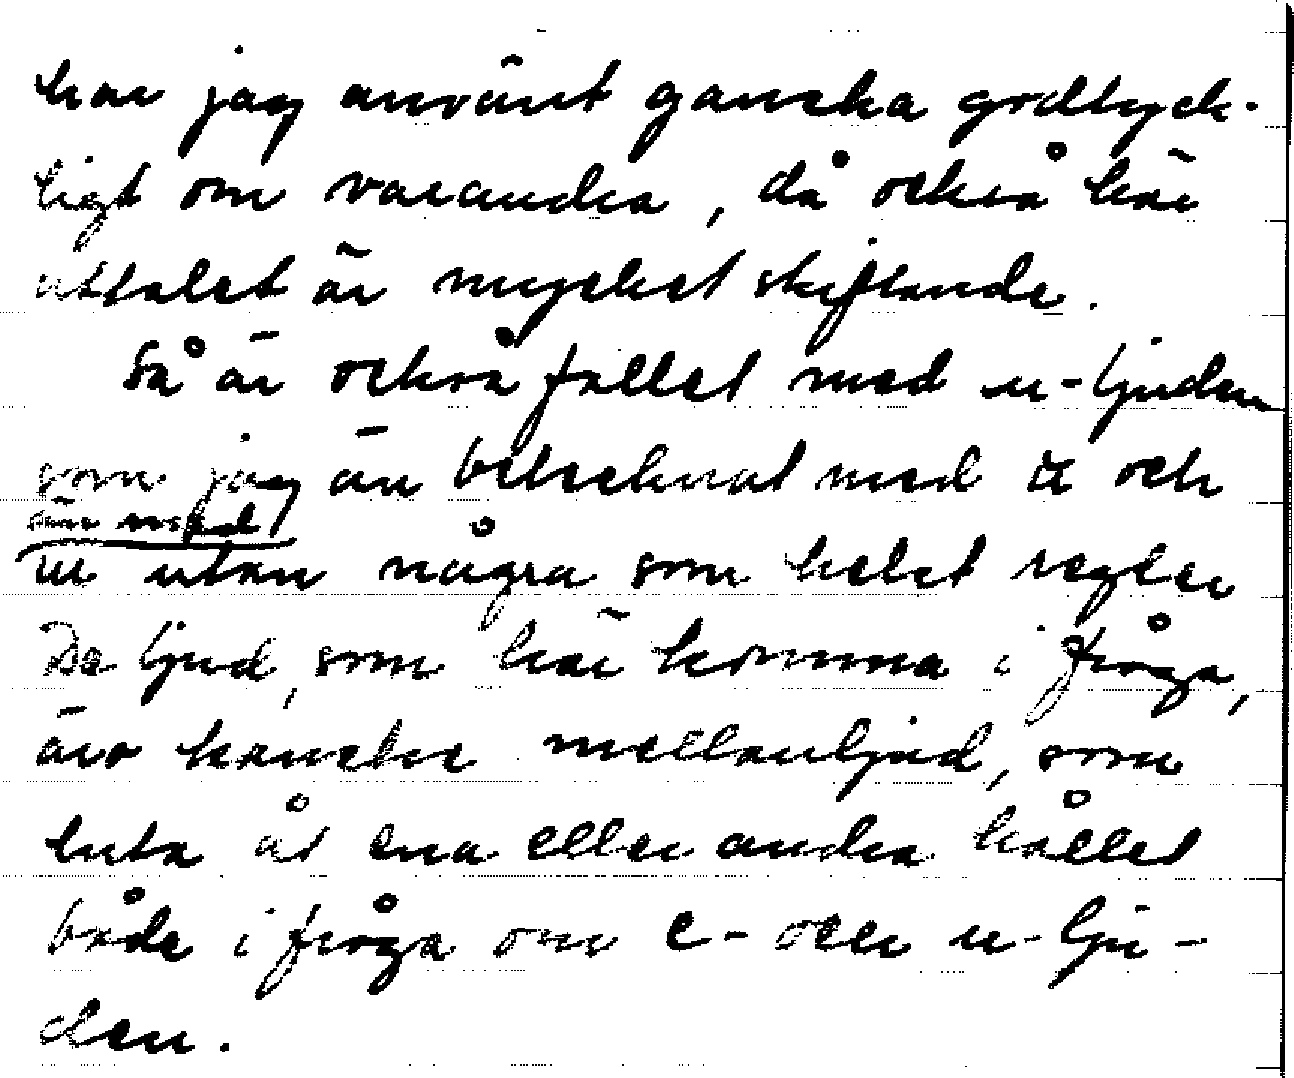 har jag använt ganska godtyck-
ligt om varandra, då också här
uttalet är mycket skiftande.
Så är också fallet med u-ljuden
som jag än betecknat med u och
än med
utan några som helst regler
De ljud, som här komma i fråga,
äro kanske mellanljud, som
luta åt ena eller andra hållet
både i fråga om e- och u-lju-
den.